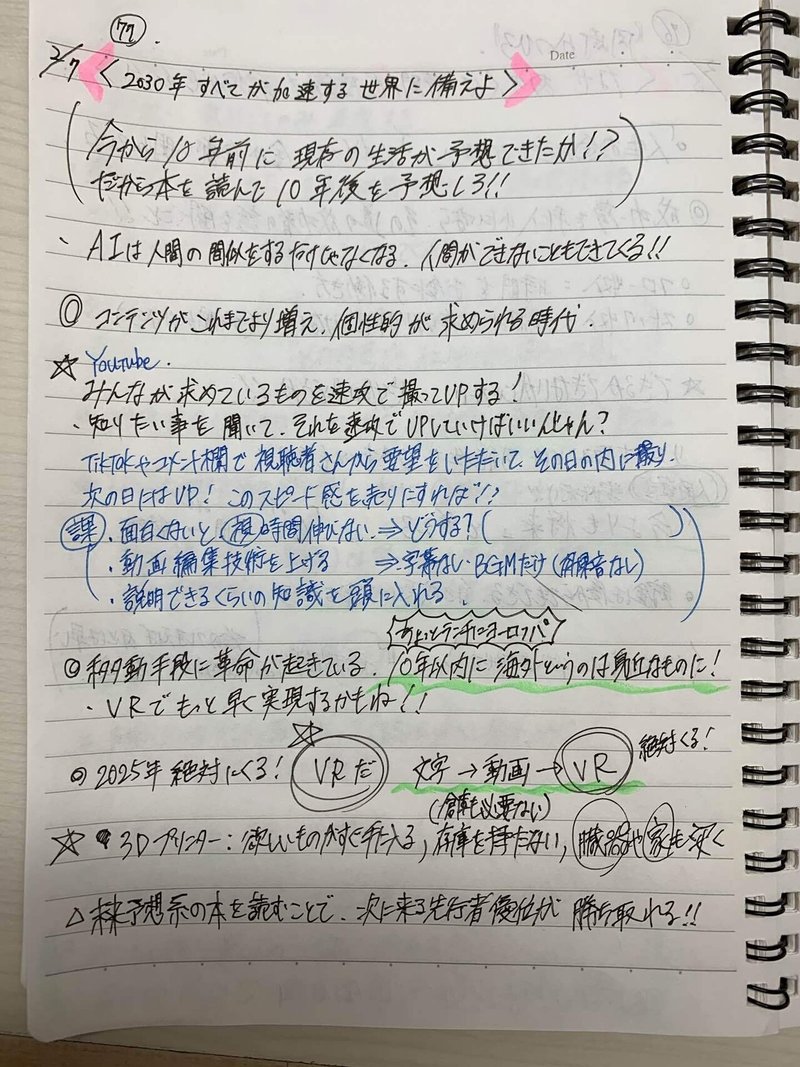 77
2/7 <2030年 すべてが加速する世界に備えよ> Date
(今から10年前に現在の生活が予想できたか!?
だから本を読んで10年後を予想しろ!!)
・AIは人間の間似をするだけじゃなくなる、人間ができないこともできてくる!!
◎ コンテンツがこれまでより増え、個性的が求められる時代.
☆ YouTube.
みんなが求めているものを速攻で撮ってUPする!
・知りたい事を聞いて、それを速攻でUPしていけばいいんじゃん?
TikTokやコメント欄で視聴者さんから要望をいただいて、その日の内に撮り、
次の日にはUP! このスピード感を売りにすれば!?
課 ・面白くないと<視>時間伸びない ⇒ どうする?( )
・動画編集技術を上げる ⇒字幕なしBGMだけ(効果音なし)
・説明できるくらいの知識を頭に入れる.
ちょっとランチにヨーロッパ
◎ 移動手段に革命が起きている. 10年以内に海外というのは身近なものに!
・VRでもっと早く実現するかもね!!
◎ 2025年 絶対にくる! ☆ VRだ 文字→動画→VR 絶対くる!
(倉庫も必要ない)
☆ 3Dプリンター:欲しいものがすぐ手に入る, 在庫を持たない, 臓器や家も
△ 未来予想系の本を読むことで、次に来る先行者優位が勝ち取れる!!